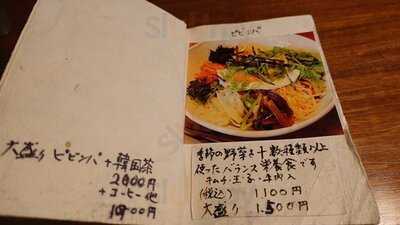 大盛り ビビンバ + 韓国茶
2000円
+コーヒー他
ビビンバ
季節の野菜を十数種類以上
使ったバランス栄養食です
キムチ・玉子・牛肉入
(税込) 1100円
大盛り 1.500円